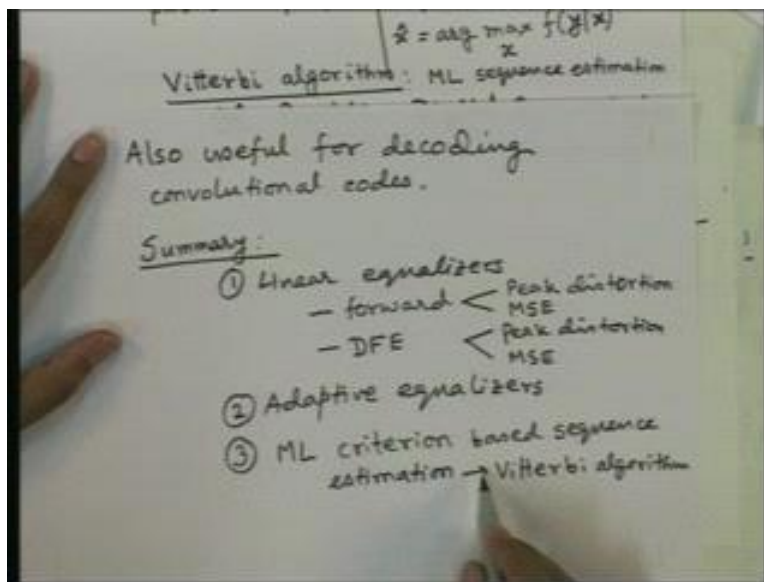 x̂ = arg max f(y|x)
x
Vitterbi algorithm : ML sequence estimation
Also useful for decoding
convolutional codes.
Summary :
① Linear equalizers
- forward < Peak distortion
MSE
- DFE < Peak distortion
MSE
② Adaptive equalizers
③ ML criterion based sequence
estimation → Vitterbi algorithm